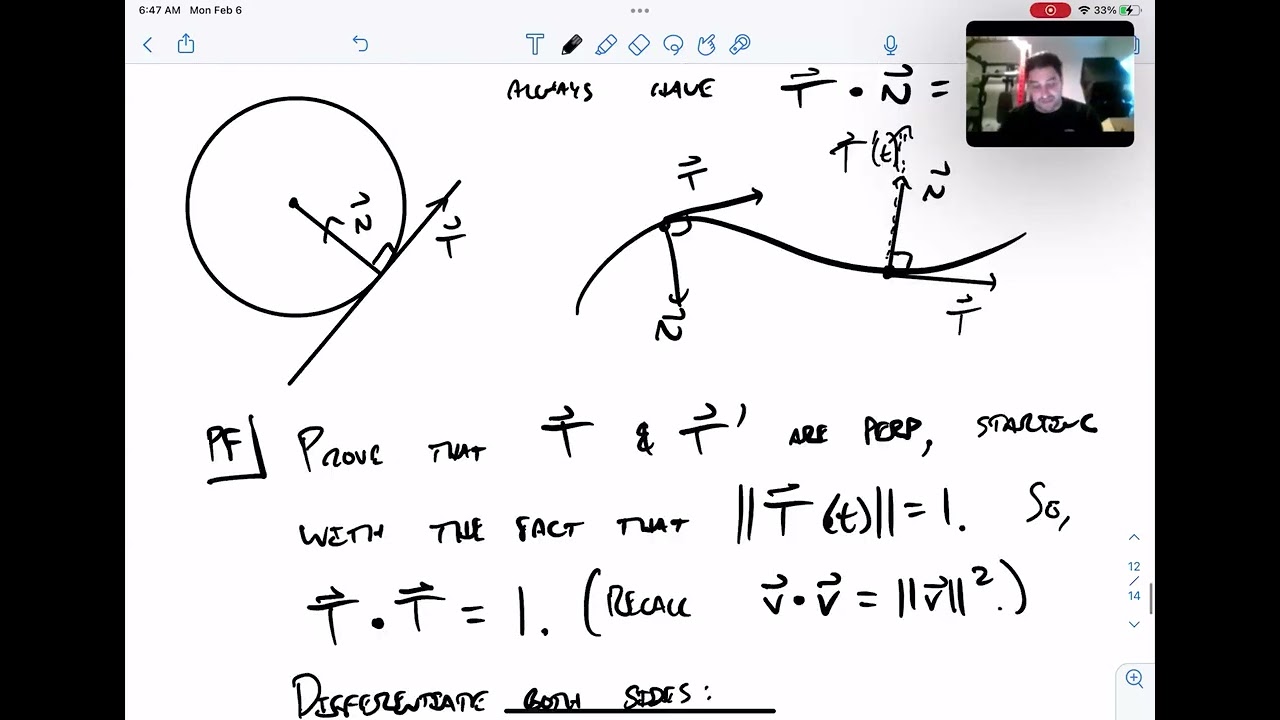 6:47 AM Mon Feb 6
33%
T
ALWAYS HAVE T⃗ • N⃗ =
T⃗'(t)
T⃗
N⃗
N⃗
T⃗
N⃗
T⃗
PF] PROVE THAT T⃗ & T⃗' ARE PERP, STARTING
WITH THE FACT THAT ||T⃗(t)|| = 1. SO,
T⃗ • T⃗ = 1. (RECALL v⃗ • v⃗ = ||v⃗||².)
DIFFERENTIATE BOTH SIDES:
12
/
14